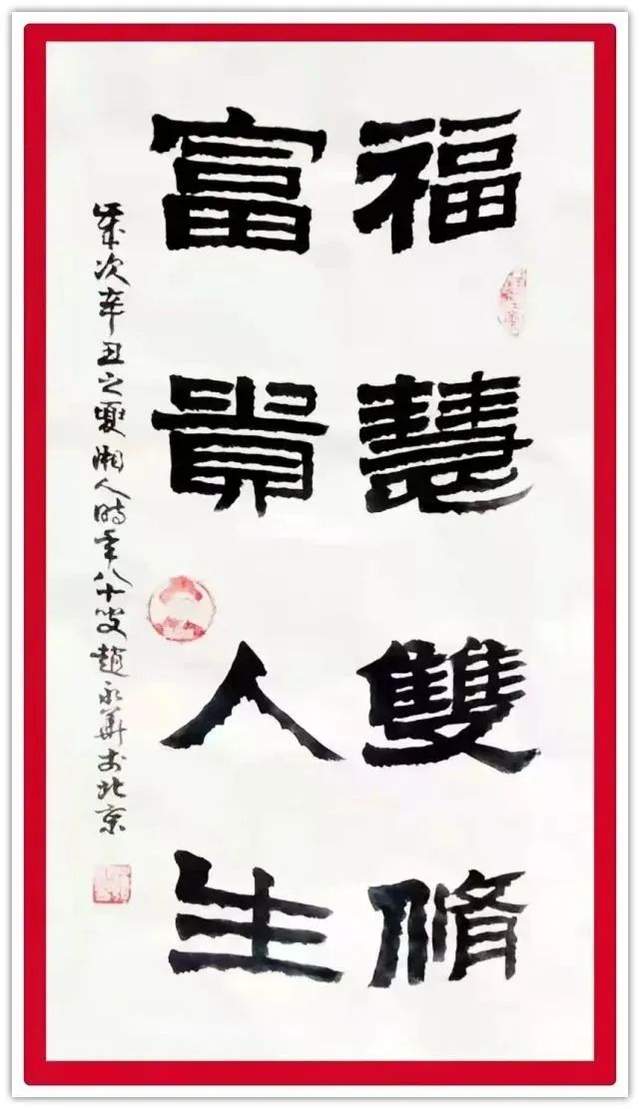 福慧雙脩
富貴人生
歲次辛丑之夏湘人時年八十叟趙永華书北京